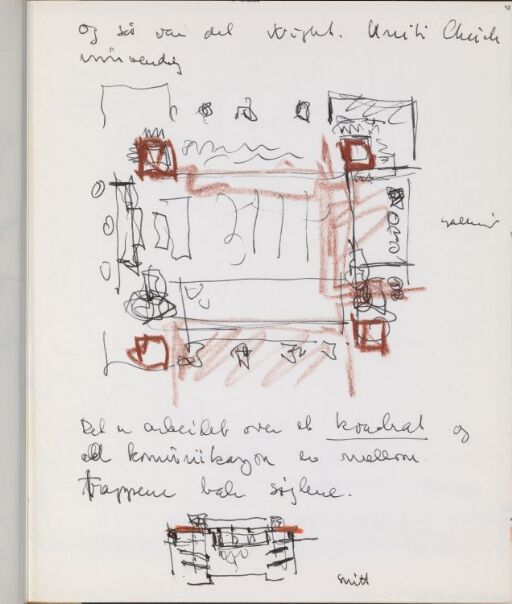 og så var det Wright. Uniti Chirch
innvendig
gallerier
Det er arbeidet over et kvadrat og
all kommunikasjon er mellom
trappene bak søylene.
snitt